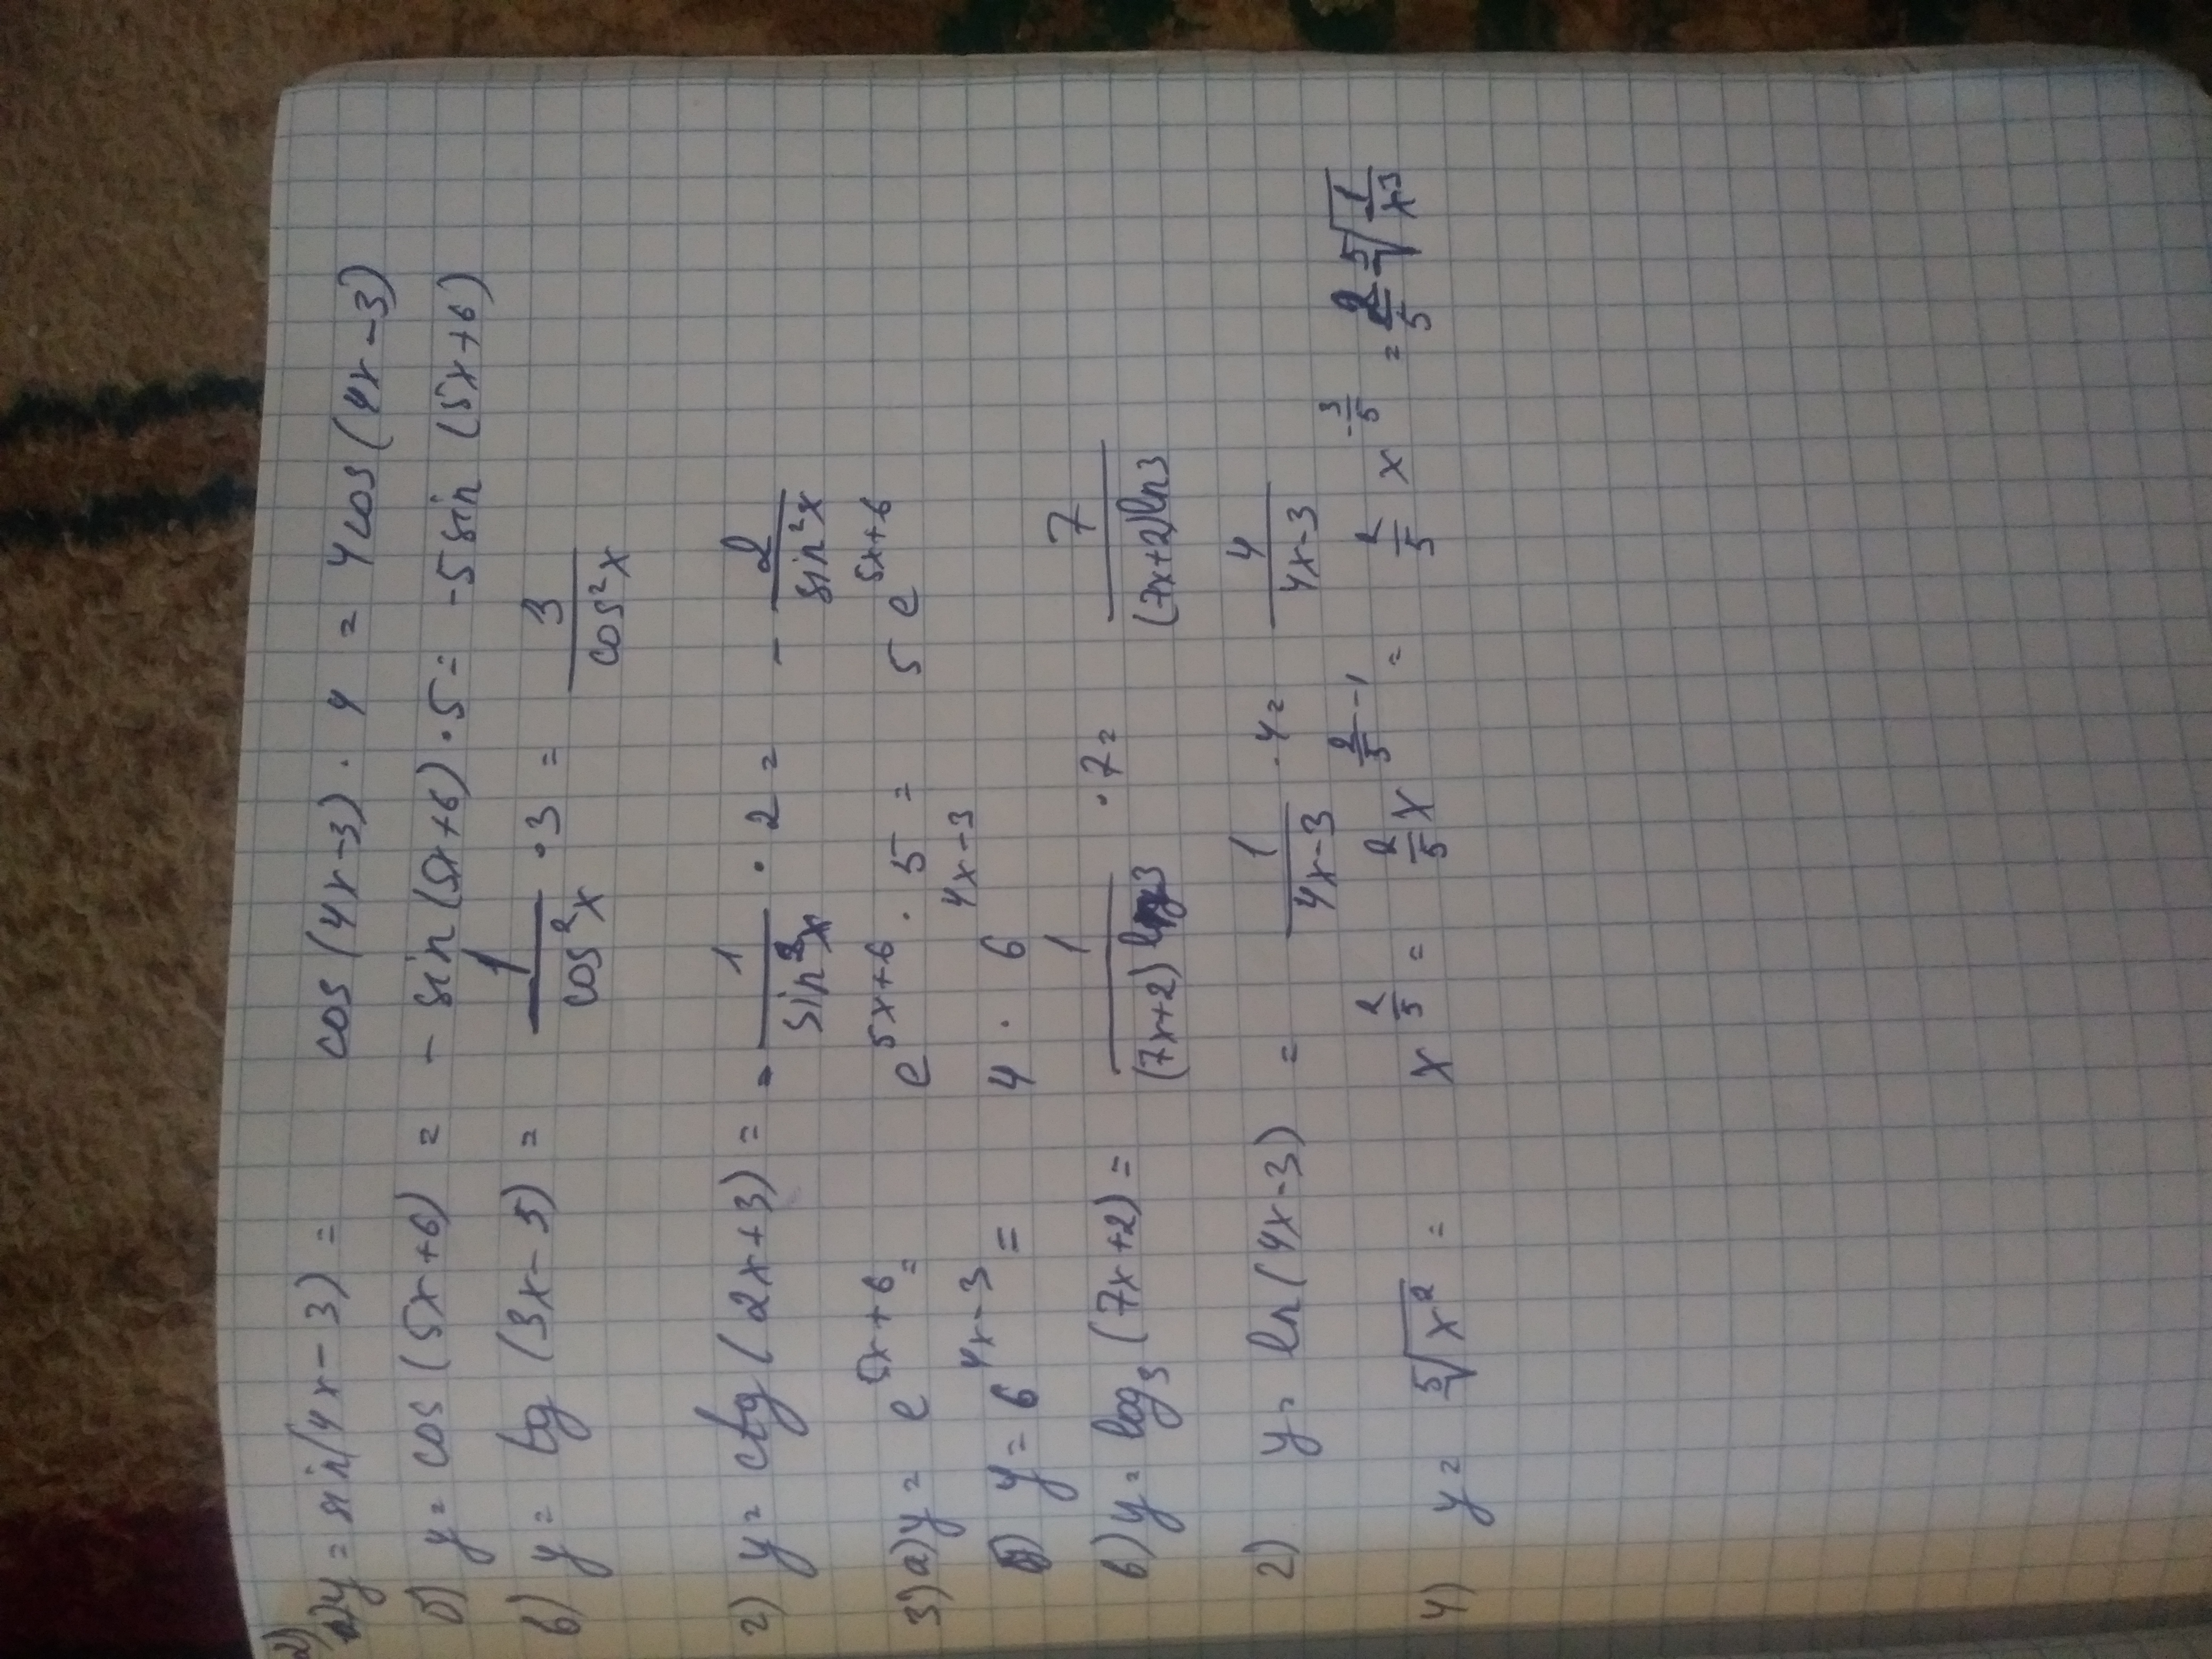 2)
а) y = sin(4x-3) = cos(4x-3) · 4 = 4cos(4x-3)
б) y = cos(5x+6) = - sin(5x+6) · 5 = -5sin(5x+6)
в) y = tg(3x-5) = 1/cos²x · 3 = 3/cos²x
г) y = ctg(2x+3) = - 1/sin²x · 2 = - 2/sin²x
3) а) y = e^(5x+6) = e^(5x+6) · 5 = 5 e^(5x+6)
б) y = 6^(4x-3) = 4 · 6^(4x-3)
в) y = log₃(7x+2) = 1/((7x+2)ln3) · 7 = 7/((7x+2)ln3)
г) y = ln(4x-3) = 1/(4x-3) · 4 = 4/(4x-3)
4) y = ⁵√(x²) = x^(2/5) = 2/5 x^(2/5-1) = 2/5 x^(-3/5) = 2/5 ⁵√(1/x³)